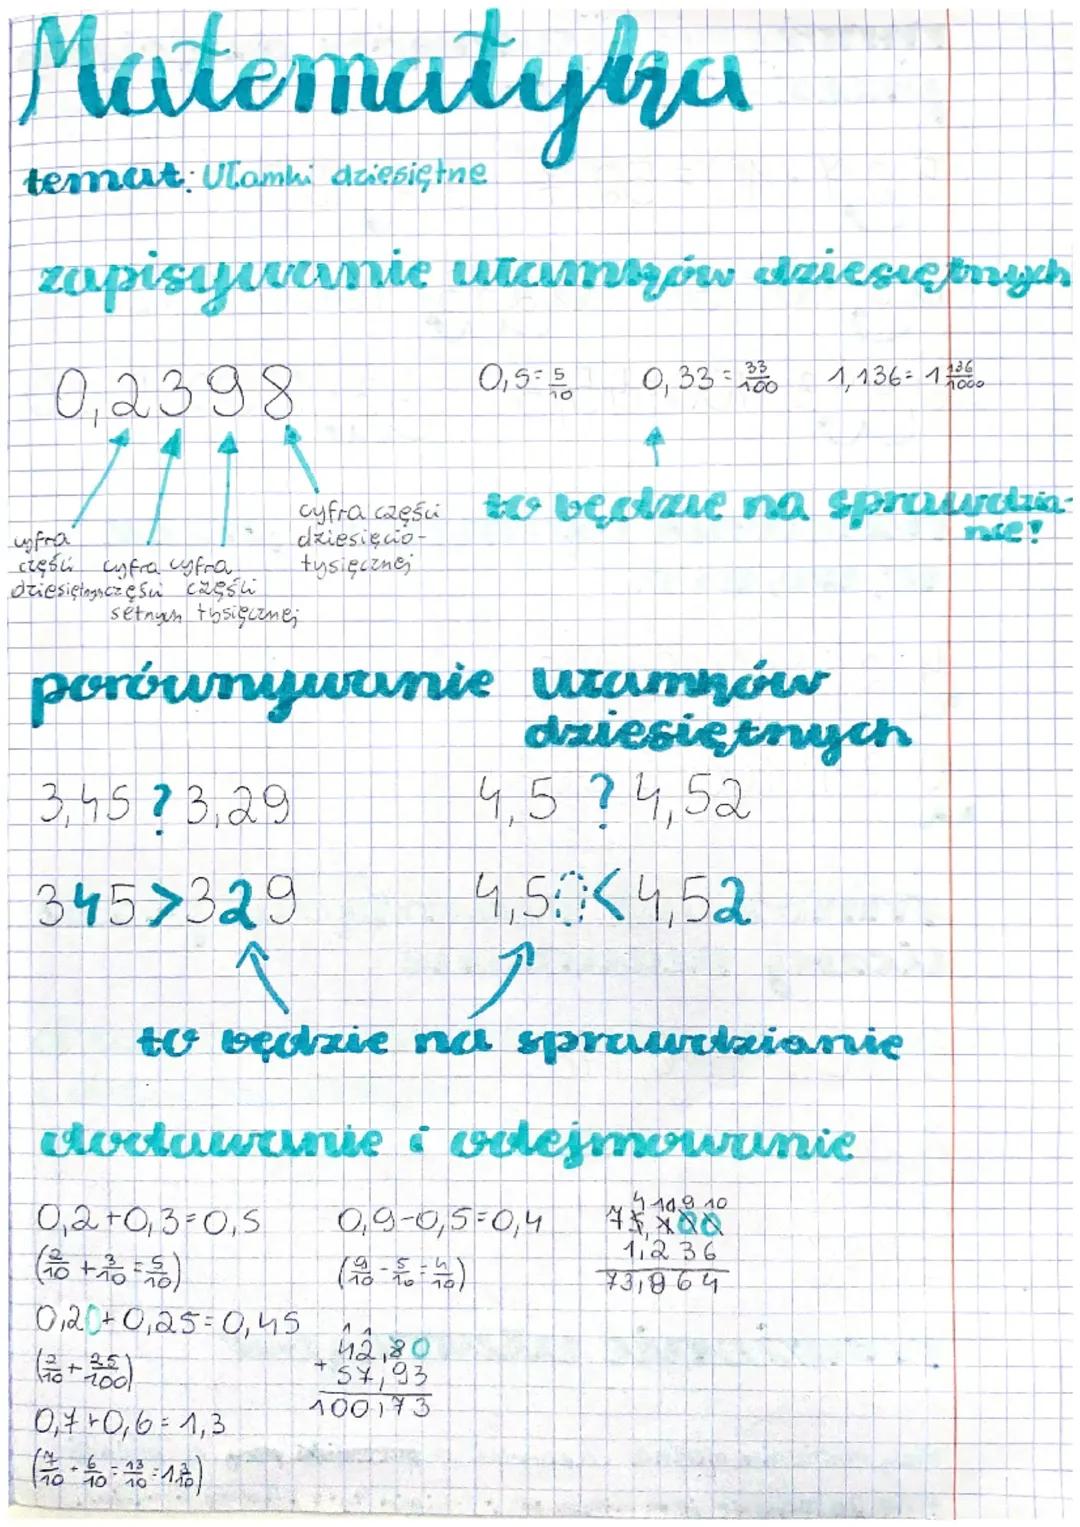 Matematyka
temat: Ułamki dziesiętne
zapisywanie ułamków dziesiętnych
0,2398
0,5=5/10 0,33=33/100 1,136=1 136/1000
cyfra części dziesiętnych
cyfra części setnych
cyfra części tysięcznej
cyfra części dziesięcio-
tysięcznej
to będzie na sprawdzia-
nie!
porównywanie ułamków
dziesiętnych
3,45 ? 3,29
4,5 ? 4,52
345>329
4,50<4,52
to będzie na sprawdzianie
dodawanie i odejmowanie
0,2+0,3=0,5
(2/10+3/10=5/10)
0,20+0,25=0,45
(2/10+25/100)
0,7+0,6=1,3
(7/10+6/10=13/10=1 3/10)
0,9-0,5=0,4
(9/10-5/10=4/10)
1 1
42,80
+57,93
100,73
4 10 9 10
1,236